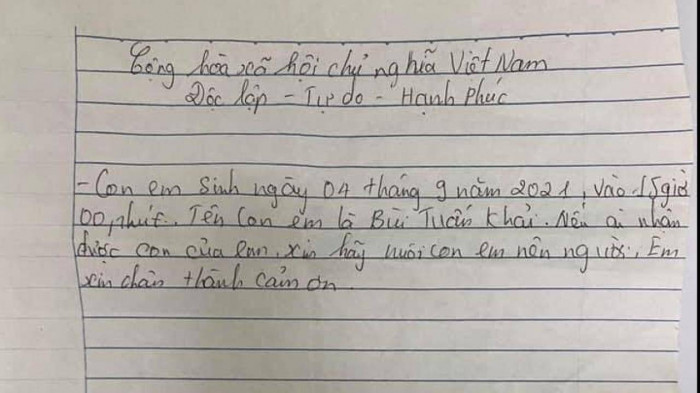 Cộng hòa xã hội chủ nghĩa Việt Nam
Độc lập - Tự do - Hạnh Phúc
- Con em sinh ngày 04 tháng 9 năm 2021, vào 15 giờ
00, phút. Tên con em là Bùi Tuấn Khải. Nếu ai nhận
được con của em, xin hãy nuôi con em nên người. Em
xin chân thành cảm ơn.